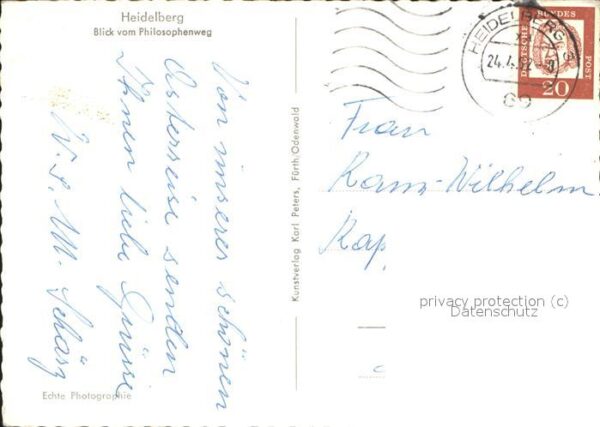 Heidelberg
Blick vom Philosophenweg
Von unserer schönen
Osterreise senden
Ihnen liebe Grüsse
W. u. M. Schärz
Echte Photographie
Kunstverlag Karl Peters, Fürth/Odenwald
HEIDELBERG
24.4.
69
DEUTSCHE BUNDESPOST
20
Frau
Wilhelm
Kap
privacy protection (c)
Datenschutz
c